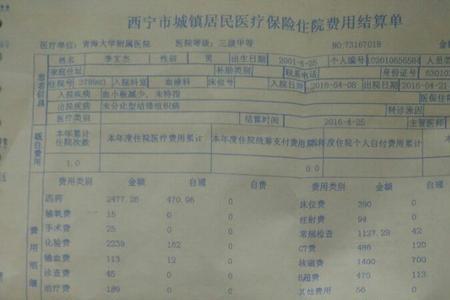 西宁市城镇居民医疗保险住院费用结算单
医疗单位: 青海大学附属医院 医院等级: 三级甲等 NO:73167018
姓名 李文杰 性别 男 出生日期 2001-6-25 个人编号
家庭住址 补助类别 联系电话 身份证号
住院号 378963 入院科室 血液科 床位号 入院日期 2016-04-08 出院日期 2016-04-21
入院疾病 血小板减少，未特指
出院疾病 未分化型结缔组织病 转诊原因
医疗类别 结算时间 2016-4-25 主管医师
本年累计住院次数 本年度住院医疗费用累计 本年度住院统筹支付费用累计 本年度住院个人自付费用累计
1.0
费用类别 金额 自理 自费 费用类别 金额 自理
西药 2477.26 470.96 0 床位费 390 0
输氧费 15 0 0 注射费 94 0
手术费 25 0 0 常规检查 1127.29 42
化验费 2239 162 0 CT费 486 120
输血费 113 12 0 核磁费 1400 700
诊查费 45 0 0 B超费 475 113
治疗费 189 0 0 其他费用 56 0
费用明细